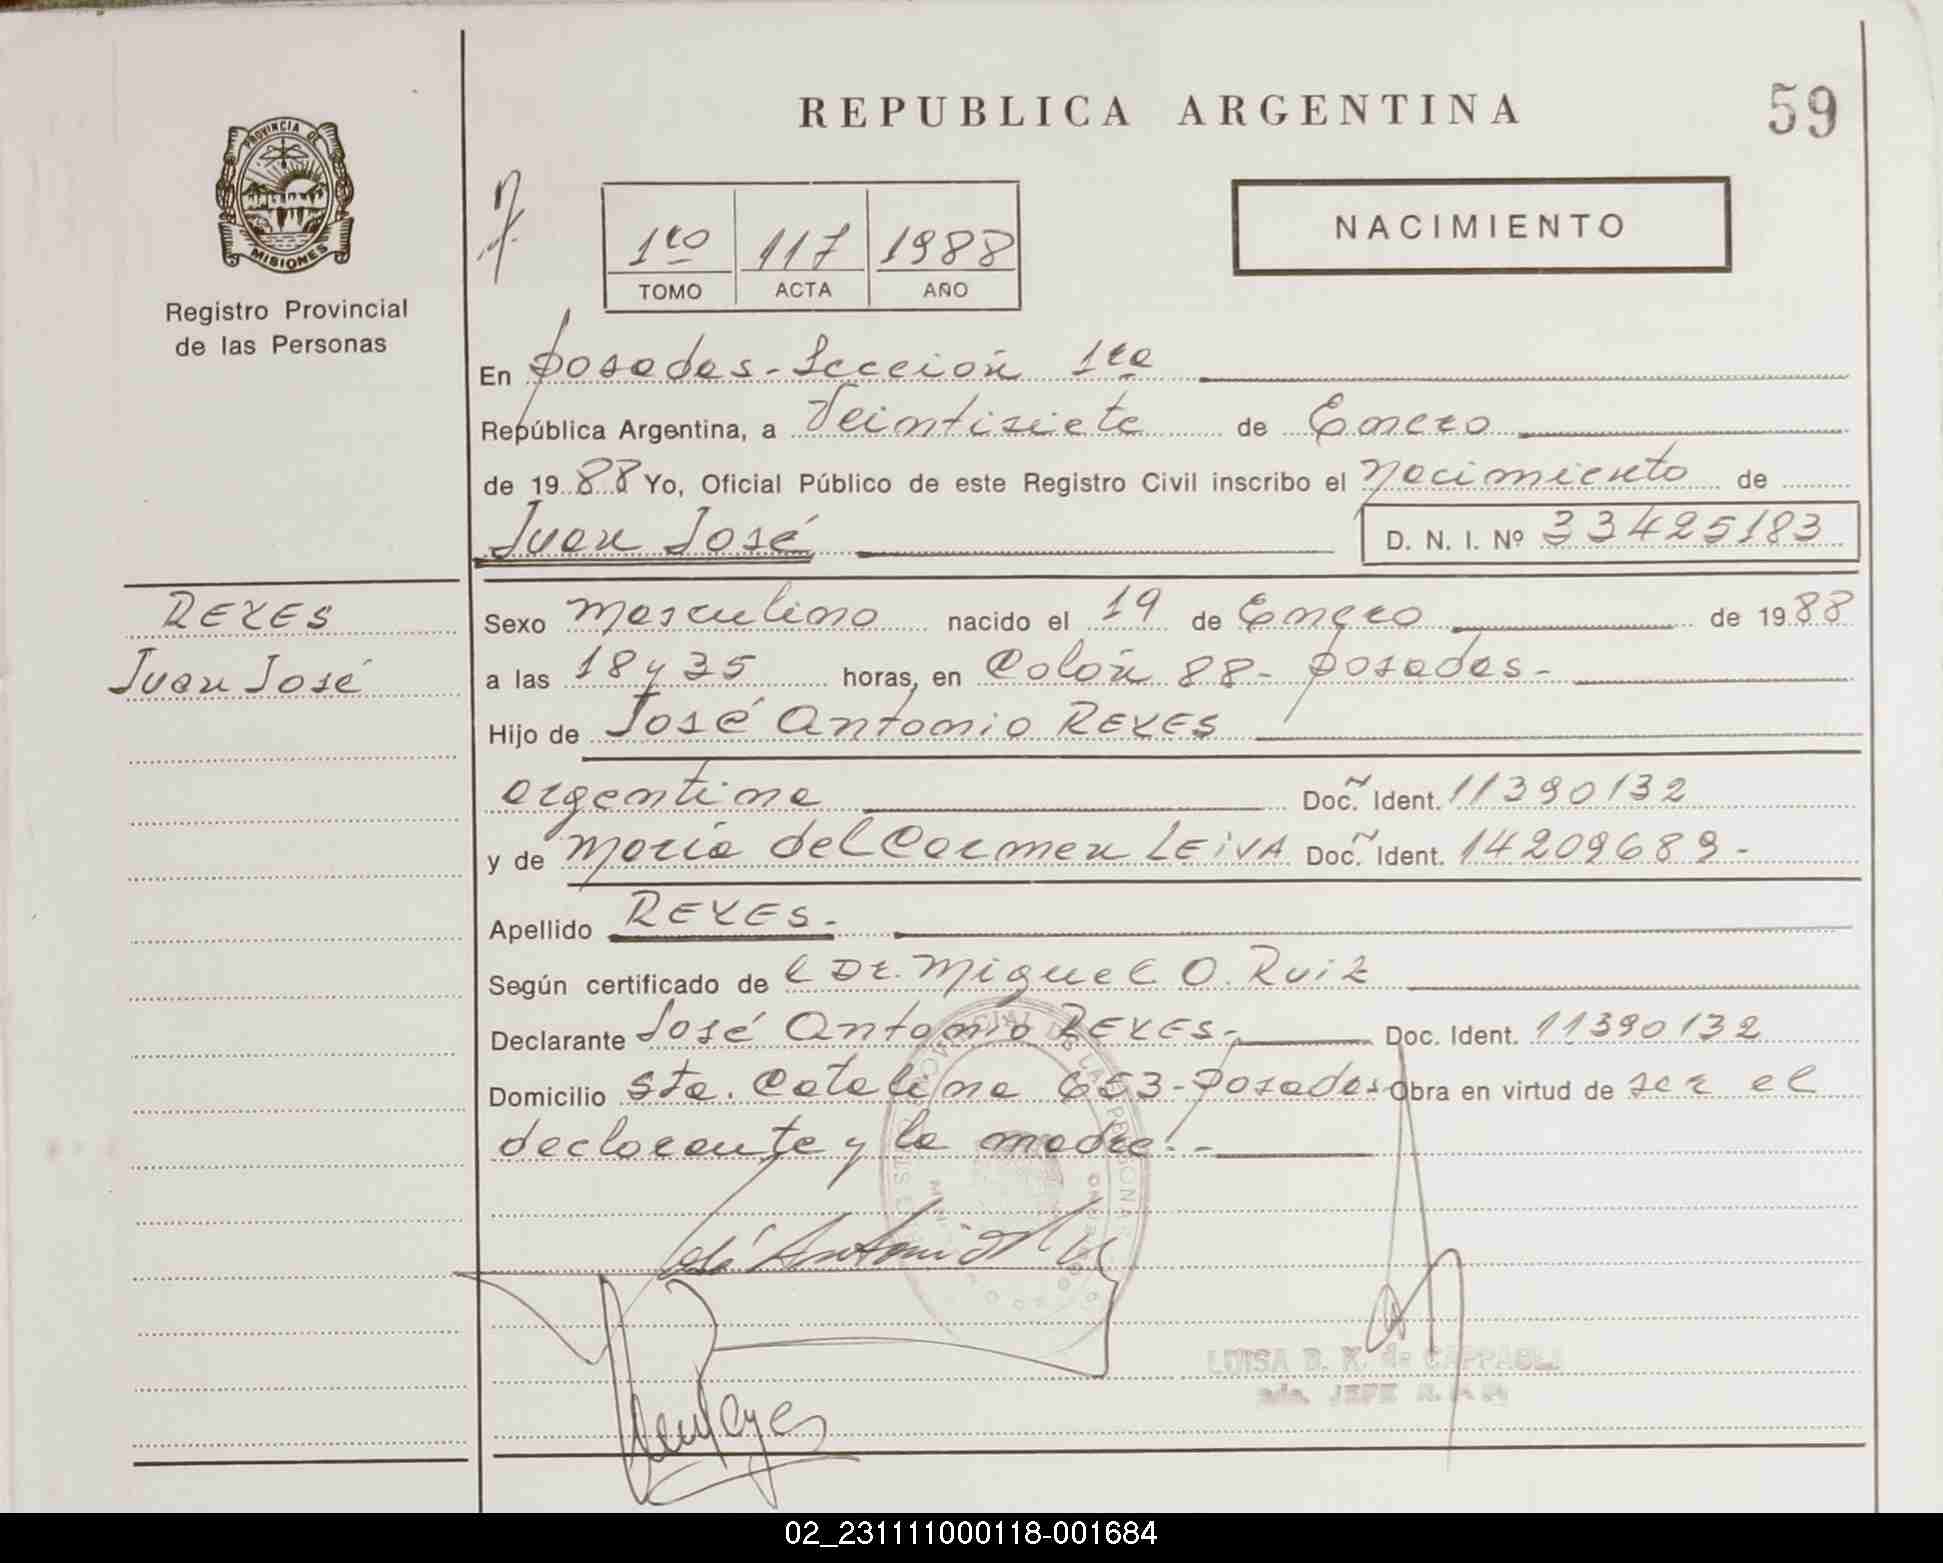 REPUBLICA ARGENTINA
59
PROVINCIA DE
MISIONES
Registro Provincial
de las Personas
1ro 117 1988
TOMO ACTA AÑO
NACIMIENTO
En Posadas-Sección 1ra
República Argentina, a Veintisiete de Enero
de 1988 Yo, Oficial Público de este Registro Civil inscribo el Nacimiento de
Juan José D. N. I. Nº 33425183
REYES
Juan José
Sexo Masculino nacido el 19 de Enero de 1988
a las 18 y 35 horas, en Colón 88- Posadas-
Hijo de José Antonio REYES
argentina Doc. Ident. 11390132
y de María del Carmen LEiVA Doc. Ident. 14209689-
Apellido REYES.
Según certificado de l Dr. Miguel O. Ruiz
Declarante José Antonio REYES- Doc. Ident. 11390132
Domicilio Sta. Catalina 653-Posadas Obra en virtud de ser el
declarante y la madre.-
José Antonio
LUISA B. K. de
JEFE
02_231111000118-001684